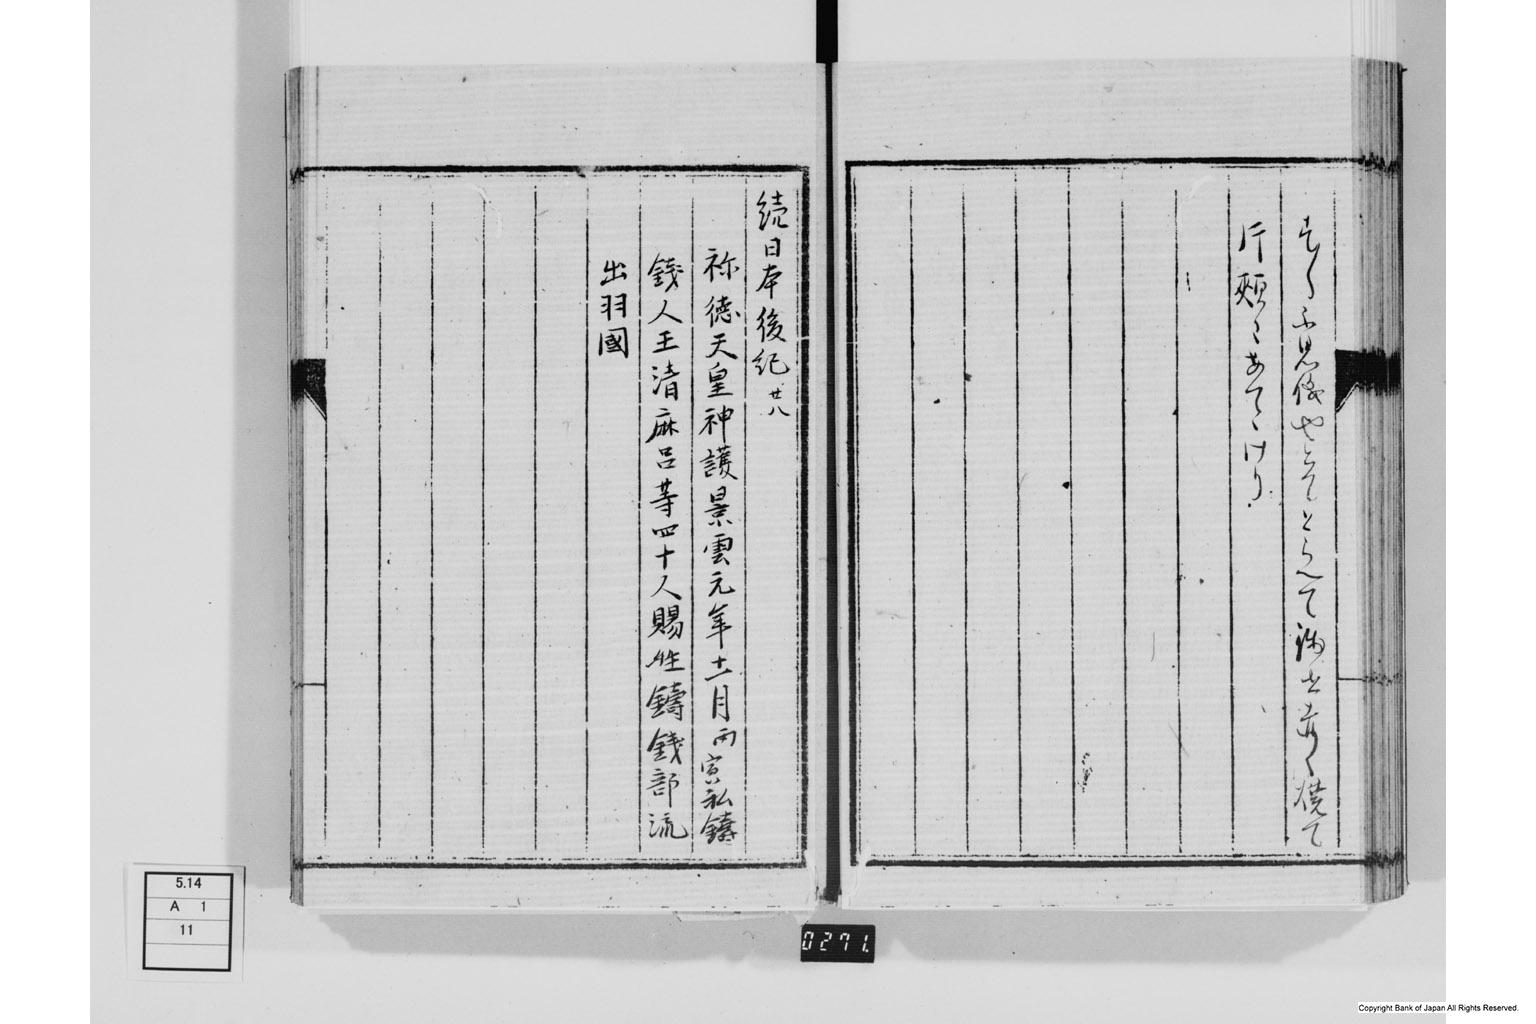 不思儀也とてとらへて銭を赤く焼て
片頬にあてゝけり
続日本後紀 廿八
称徳天皇神護景雲元年十一月丙寅私鋳
錢人王清麻呂等四十人賜姓鑄錢部流
出羽國
5.14
A 1
11
0271.
Copyright Bank of Japan All Rights Reserved.